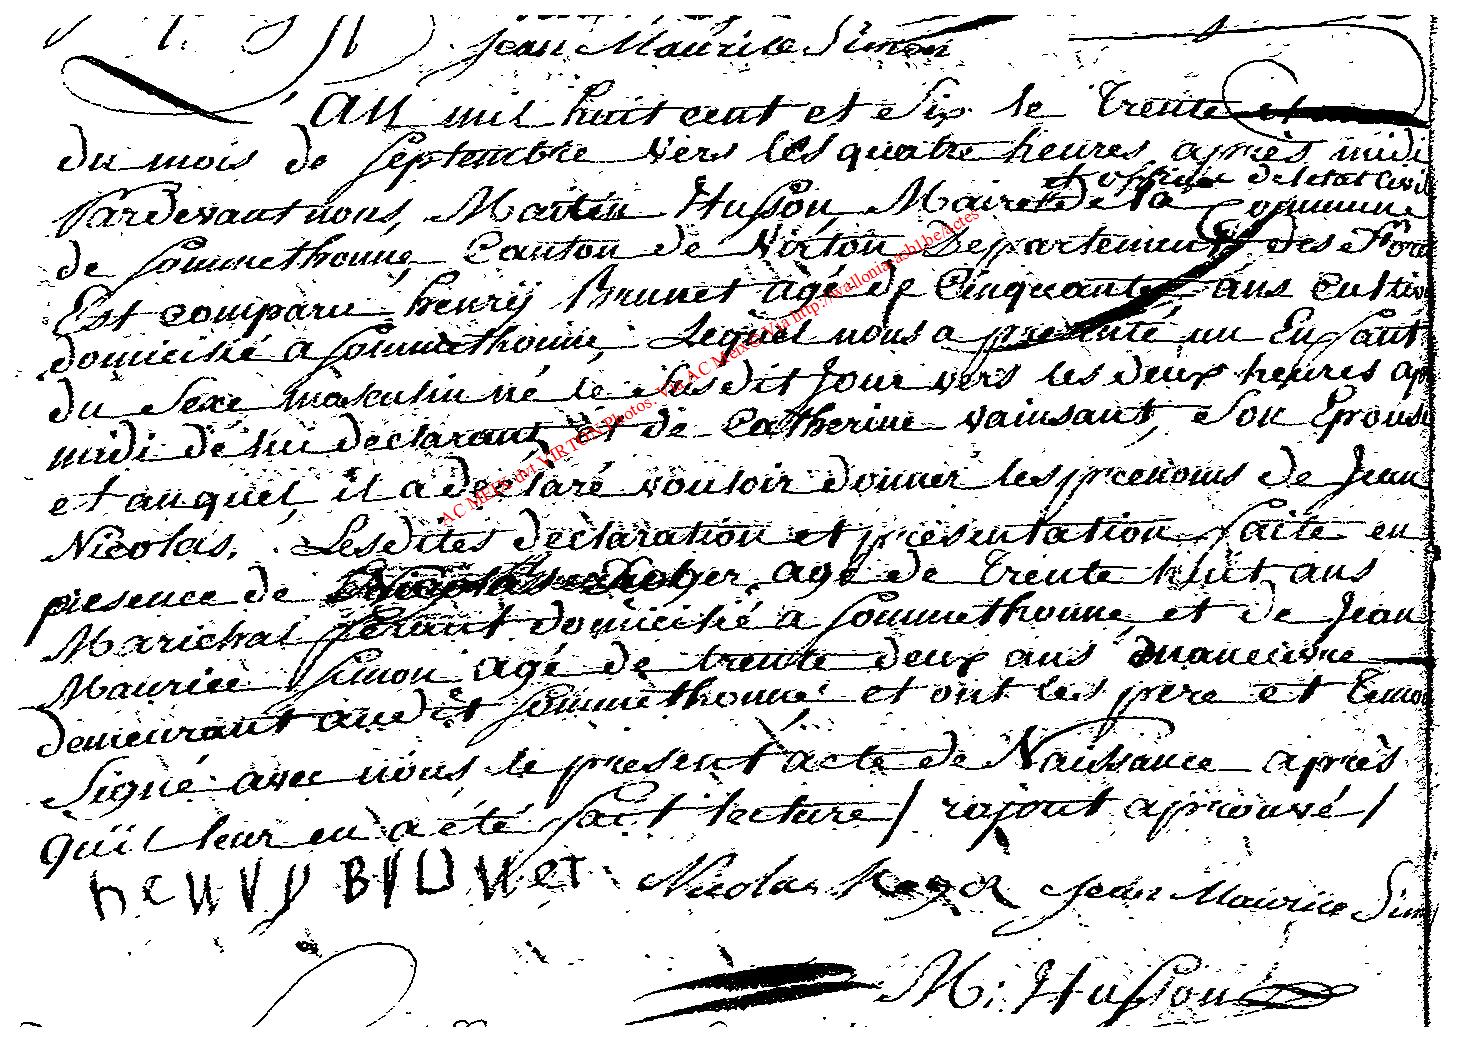 Jean Maurice Simon
L'An mil huit cent et Six le Trente et
du mois de Septembre vers les quatre heures après midi
et officier de letat Civil
Pardevant nous, Martin Husson, Maire de la Commune
de Sommethonne, Canton de Virton Departement des Forê
Est comparu henrÿ Brunet agé de Cinquante ans Cultiv
domicilié a Sommethonne, Lequel nous a presenté un Enfant
du Sexe masculin né le susdit Jour vers les deux heures apr
midi de lui declarant, Et de Catherine vainsant, Son Epouse
et auquel, il a declaré vouloir donner les prenoms de Jean
Nicolas. Lesdites declaration et présentation faite en
presence de age de Trente huit ans
Marichal ferant domicilié a Sommethonne, et de Jean
Maurice Simon agé de trente deux ans
demeurant audit Sommethonne et ont les pere et Temoi
Signé avec nous, le present acte de Naissance après
qu'il leur en a été fait lecture / rajout aprouvé /
henry Brunet Nicolas Jean Maurice Sim
M: Husson
AC MEIX dvt VIRTON Photos. Via AC Meix@ Via http://wallonia.asbl.be/Actes